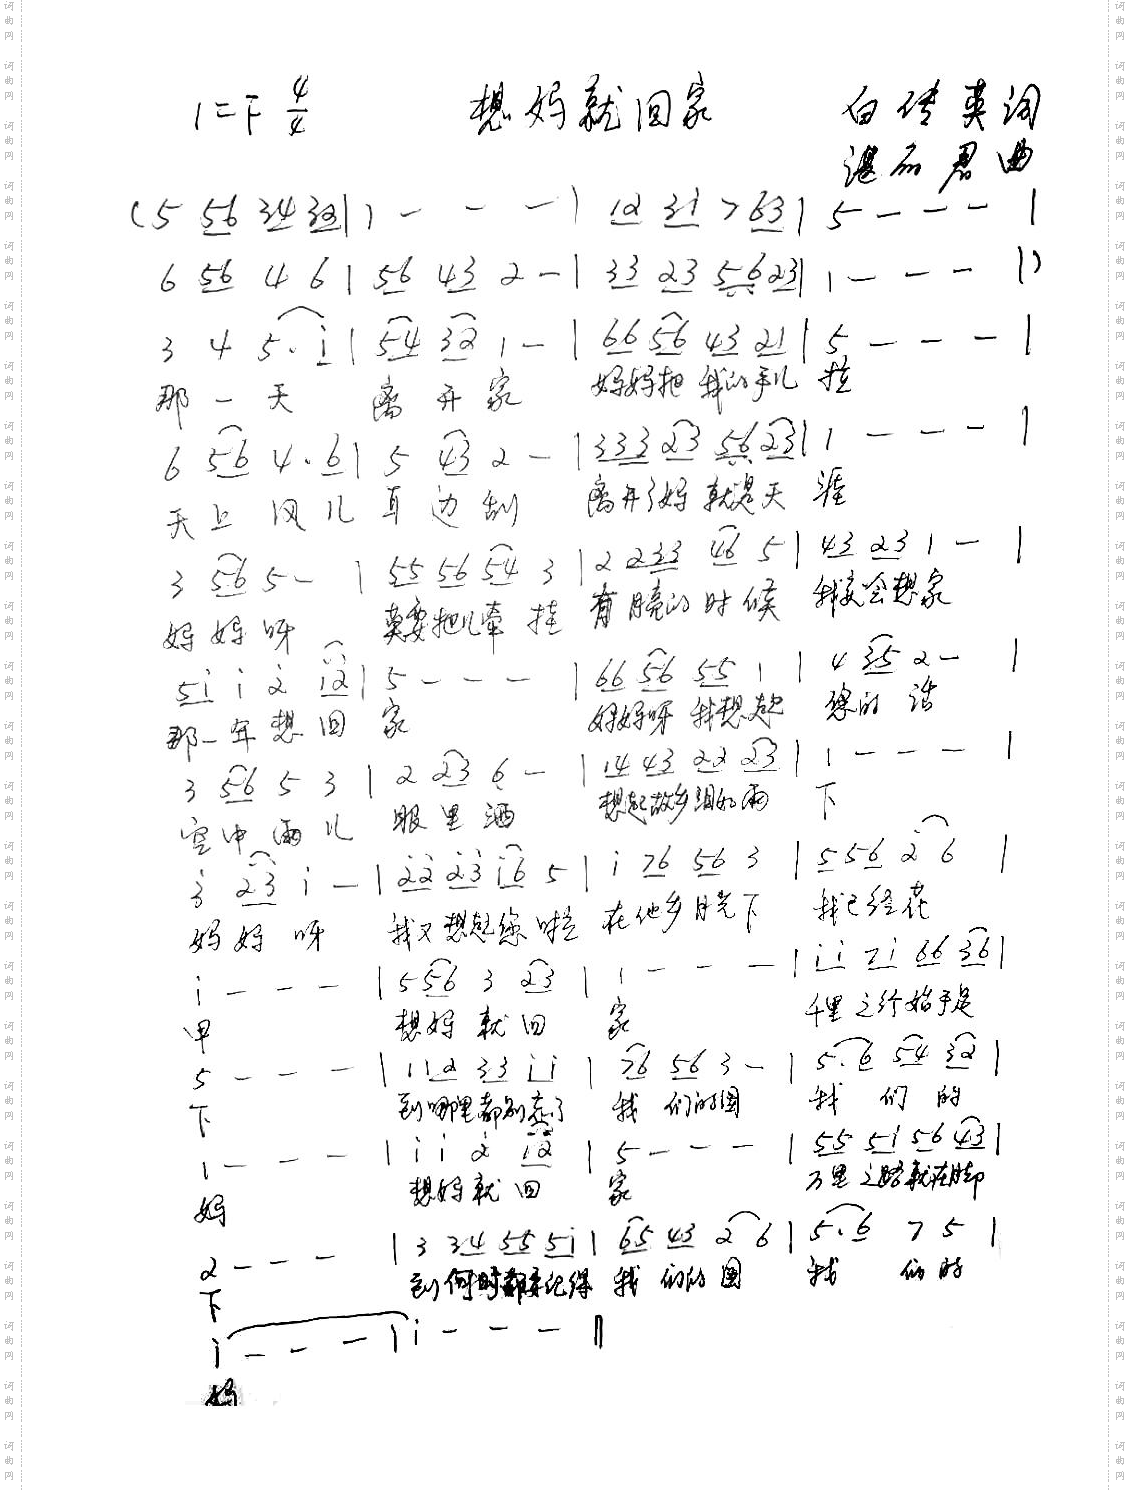 1=F 4/4 想妈就回家 白传英词
湛石君曲
(5 56 34 32 | 1 - - - | 12 31 7 63 | 5 - - - |
6 56 4 6 | 56 43 2 - | 33 23 56 23 | 1 - - - |)
3 4 5. i | 54 32 1 - | 66 56 43 21 | 5 - - - |
那一天 离开家 妈妈把我的手儿拉
6 56 4. 6 | 5 43 2 - | 333 23 56 23 | 1 - - - |
天上风儿耳边刮 离开了妈就是天涯
3 56 5 - | 55 56 54 3 | 2 233 46 5 | 43 23 1 - |
妈妈呀 莫要把儿牵挂 有月亮的时候 我会想家
5i i 2 i2 | 5 - - - | 66 56 55 1 | 4 35 2 - |
那一年想回家 妈妈呀我想起您的话
3 56 5 3 | 2 23 6 - | 14 43 22 23 | 1 - - - |
空中雨儿眼里洒 想起故乡泪如雨下
3 23 i - | 22 23 i6 5 | i 76 56 3 | 5 56 2 6 |
妈妈呀 我又想起您啦 在他乡月光下 我已经花
i - - - | 5 56 3 23 | 1 - - - | i i 7i 66 36 |
甲 想妈就回家 千里之行始于足
5 - - - | 11 2 33 ii | 76 56 3 - | 5. 6 54 32 |
下 到哪里都别忘了我们的国 我们的
1 - - - | i i 2 i2 | 5 - - - | 55 51 56 43 |
妈 想妈就回家 万里之路就在脚
2 - - - | 3 34 55 5i | 65 43 2 6 | 5. 6 7 5 |
下 到何时都要记得我们的国 我们的
i - - - | i - - - ‖
妈
词曲网